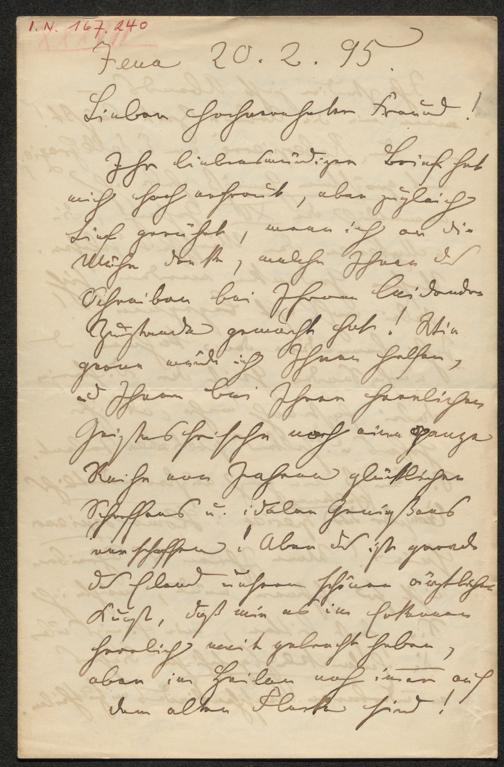 I. N. 167.240
Jena 20. 2. 95.
Lieber hochverehrter Freund!
Ihr liebenswürdiger Brief hat
mich hoch erfreut, aber zugleich
tief gerührt, wenn ich an die
Mühe denke, welche Ihnen das
Schreiben bei Ihrem leidenden
Zustande gemacht hat! Wie
gerne würde ich Ihnen helfen,
und Ihnen bei Ihrer herrlichen
Geistesfrische noch eine ganze
Reihe von Jahren glücklichen
Schaffens u. idealen Genießens
verschaffen! Aber das ist gerade
das Elend unserer schönen ärztlichen
Kunst, daß wir es im Erkennen
herrlich weit gebracht haben,
aber im Heilen noch immer auf
dem alten Flecke sind!